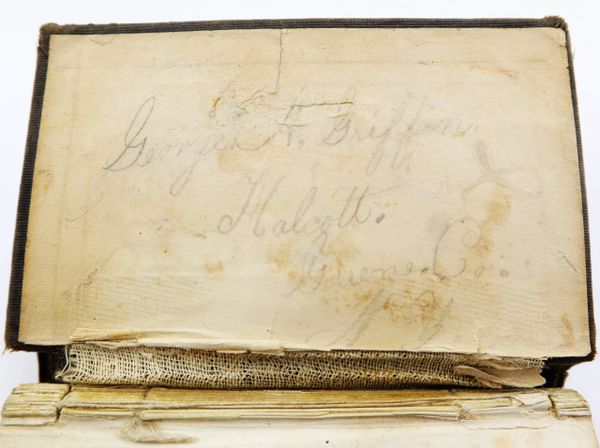 George A. Griffin
Halcott.
Greene Co.
N Y